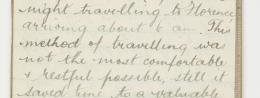 night travelling to Florence
arriving about 6 am. This
method of travelling was
not the most comfortable
& restful possible, still it
saved time to a valuable